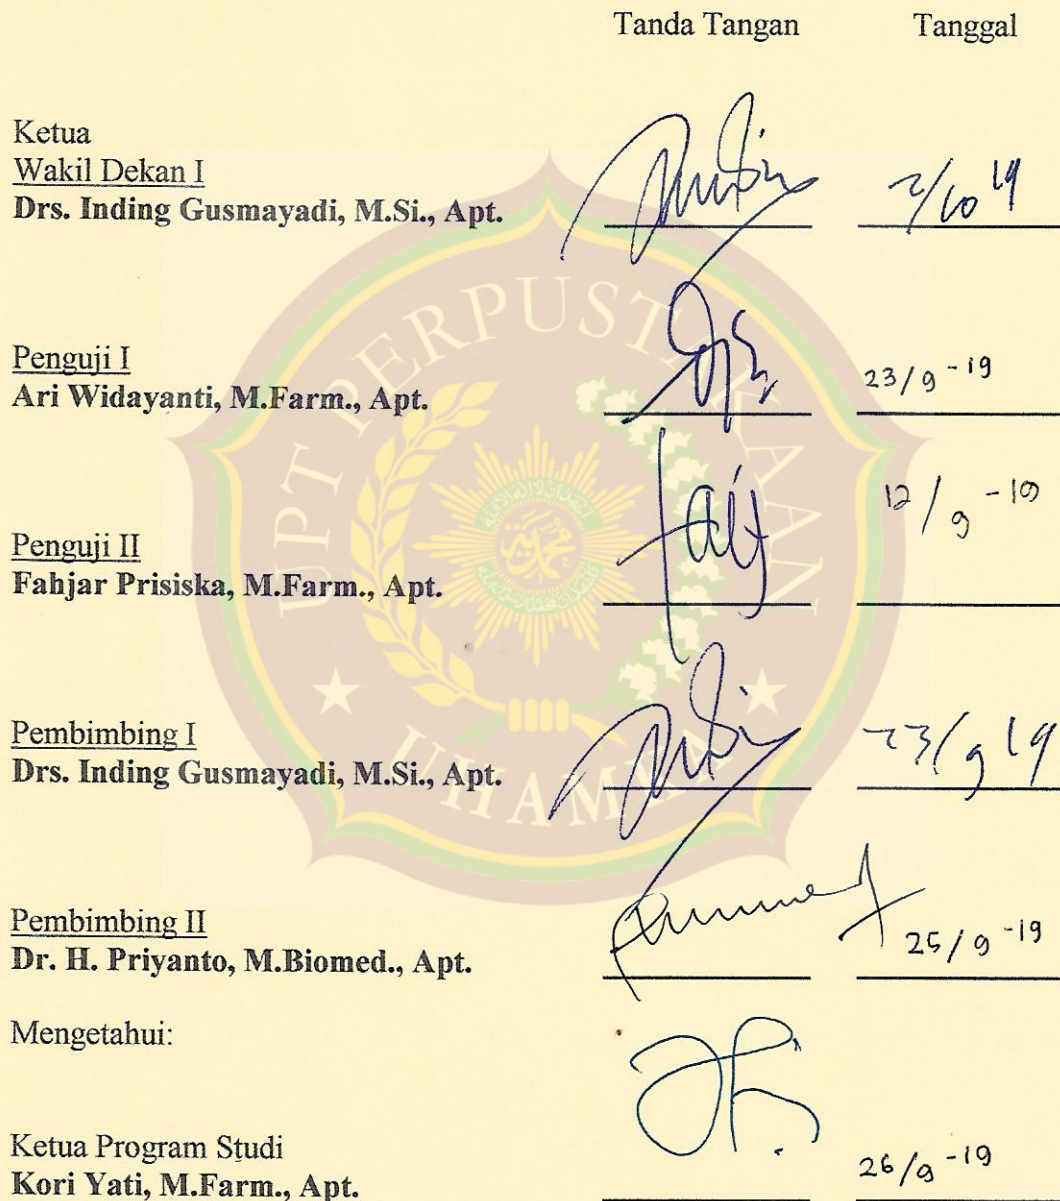 Tanda Tangan Tanggal
Ketua
Wakil Dekan I
Drs. Inding Gusmayadi, M.Si., Apt. 2/10 19
Penguji I
Ari Widayanti, M.Farm., Apt. 23/9 -19
Penguji II
Fahjar Prisiska, M.Farm., Apt. 12/9 -19
Pembimbing I
Drs. Inding Gusmayadi, M.Si., Apt. 23/9 19
Pembimbing II
Dr. H. Priyanto, M.Biomed., Apt. 25/9 -19
Mengetahui:
Ketua Program Studi
Kori Yati, M.Farm., Apt. 26/9 -19
UPT PERPUSTAKAAN
UHAMKA